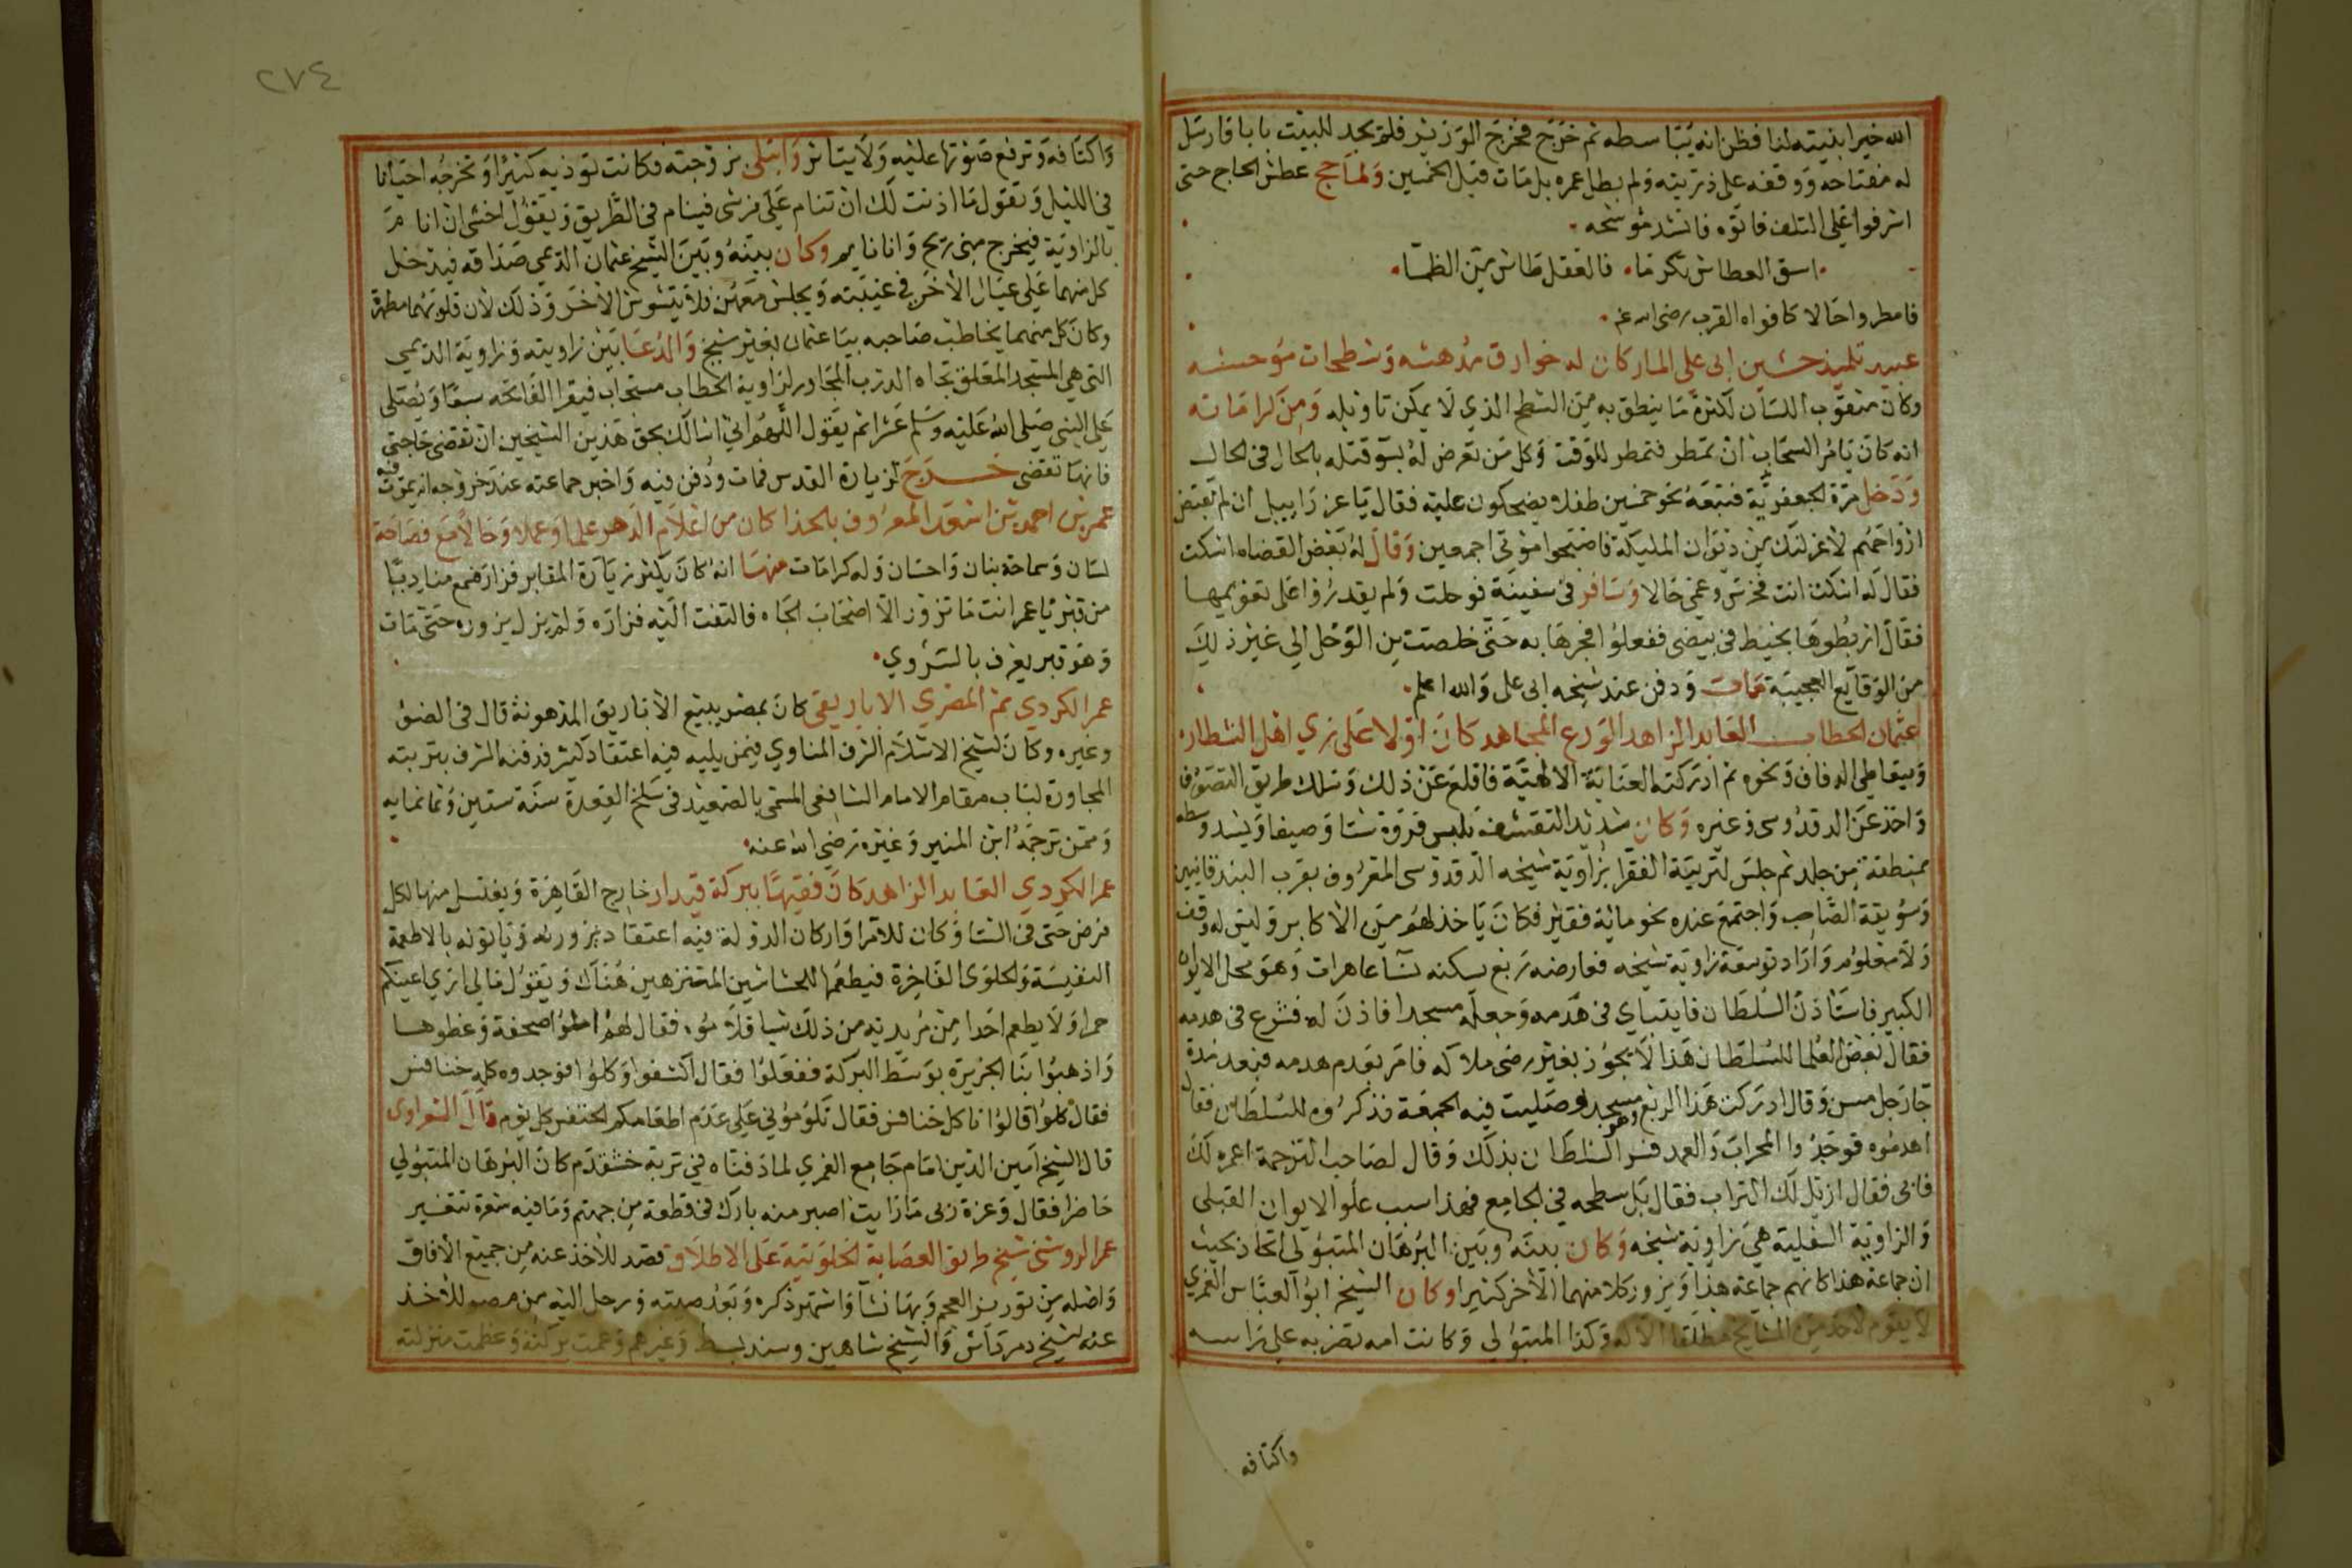 الله خيرا بنيته لنا فظن انه يتباسطه ثم خرج فخرج الوزير فلم يجد للبيت بابا فارسل
له مفتاحه ووقفه على ذريته ولم يطل عمره بل مات قبل الخمسين ولما حج عطش الحاج حتى
اشرفوا على التلف فاتوه فانشد موشحه
اسق العطاش تكرما فالعقل طاش من الظما
فامطروا حالا كافواه القرب رضى الله عنه
عبيد تلميذ حسين ابى على المار كان له خوارق مدهشه وشطحات موحشه
وكان مثقوب اللسان لكثرة ما ينطق به من الشطح الذي لا يمكن تاويله ومن كراماته
انه كان يامر السحاب ان تمطر فتمطر للوقت وكل من تعرض له بسو قتله بالحال فى الحال
ودخل مرة لجعفرية فتبعه نحو خمسين طفلا يضحكون عليه فقال يا عزراييل ان لم تقبض
ارواحهم لاعزلنك من ديوان المليكة فاصبحوا موتى اجمعين وقال له بعض القضاه اسكت
فقال له اسكت انت فخرس وعمى حالا وسافر فى سفينة فوحلت ولم يقدروا على تقويمها
فقال اربطوها بخيط فى بيضى ففعلوا فجرها به حتى خلصت من الوحل الى غير ذلك
من الوقايع العجيبة مات ودفن عند شيخه ابى على والله اعلم
عثمان الحطاب العابد الزاهد الورع المجاهد كان اولا على زي اهل الشطار
ويتعاطى الدفاف ونحوه ثم ادركته العناية الالهية فاقلع عن ذلك وسلك طريق التصوف
واخذ عن الدقدوسى وغيره وكان شديد التقشف يلبس فروة شتا وصيفا ويشد وسطه
بمنطقة من جلد ثم جلس لتربية الفقرا بزاوية شيخه الدقدوسى المعروف بقرب البندقانيين
وسويقة الصاحب واجتمع عنده نحو ماية فقير فكان ياخذ لهم من الاكابر وليس له وقف
ولا معلوم واراد توسعة زاوية شيخه فعارضه ربع يسكنه نسا عاهرات وهو محل الايوان
الكبير فاستاذن السلطان قايتباي فى هدمه وجعله مسجدا فاذن له فشرع فى هدمه
فقال بعض العلما للسلطان هذا لا يجوز بغير رضى ملاكه فامر بعدم هدمه فبعد مدة
جا رجل مسن وقال ادركت هذا الربع وهو مسجد وصليت فيه الجمعة فذكروه للسلطان فقال
اهدموه فوجدوا المحراب والعمد فسر السلطان بذلك وقال لصاحب الترجمة اعمره لك
فابى فقال ازيل لك التراب فقال بل سطحه في الجامع فهذا سبب علو الايوان القبلى
والزاوية السفلية هي زاوية شيخه وكان بينه وبين البرهان المتبولى اتحاد بحيث
ان جماعة هذا كانهم جماعة هذا ويزور كلا منهما الاخر كثيرا وكان الشيخ ابو العباس الغمري
لا يقوم لاحد من المشايخ مطلقا الا له وكذا المتبولى وكانت امه تضربه على راسه
واكتافه
٢٧٤
واكتافه وترفع صوتها عليه ولا يتاثر وابتلى بزوجته فكانت توذيه كثيرا وتخرجه احيانا
في الليل وتقول ما اذنت لك ان تنام على فرشى فينام في الطريق ويقول اخشى ان انام
بالزاوية فيخرج منى ريح وانا نايم وكان بينه وبين الشيخ عثمان الديمي صداقه فيدخل
كل منهما على عيال الاخر في غيبته ويجلس معهن فلا يتشوش الاخر وذلك لان قلوبهما مطهرة
وكان كل منهما يخاطب صاحبه بيا عثمان بغير شيخ والدعا بين زاويته وزاوية الديمي
التي هي المسجد المعلق تجاه الدرب المجاور لزاوية الحطاب مستجاب فيقرا الفاتحه سبعا ويصلى
على النبى صلى الله عليه وسلم عشرا ثم يقول اللهم انى اسالك بحق هذين الشيخين ان تقضى حاجتى
فانها تقضى خرج لزيارة القدس فمات ودفن فيه واخبر جماعته عند خروجه انه يموت فيه
عمر بن احمد بن اسعد المعروف بالحذا كان من اعلام الدهر علما وعملا وحالا مع فصاحة
لسان وسماحة بنان واحسان وله كرامات منها انه كان يكثر زيارة المقابر فزارهم مناديا
من قبر يا عمر انت ما تزور الا اصحاب الجاه فالتفت اليه فزاره ولم يزل يزوره حتى مات
وهو قبر يعرف بالسروي
عمر الكردي ثم المصري الاباريقى كان بمصر يبيع الاباريق المدهونة قال فى الضو
وغيره وكان لشيخ الاسلام الشرف المناوي فيمن يليه فيه اعتقاد كثير فدفنه الشرف بتربته
المجاورة لباب مقام الامام الشافعى المسمى بالصعيد فى سلخ القعدة سنة ستين وثمانمايه
وممن ترجمه ابن المنير وغيره رضى الله عنه
عمر الكردي العابد الزاهد كان فقيها ببركة قيدار خارج القاهرة ويغتسل منها لكل
فرض حتى فى الشتا وكان للامرا واركان الدولة فيه اعتقاد يزورنه وياتونه بالاطعمة
النفيسة والحلوى الفاخرة فيطعمها للحشاشين المتنزهين هناك ويقول مالى ارى اعينكم
حمرا ولا يطعم احدا من مريديه من ذلك شيا فلاموه فقال لهم املوا صحفة وغطوها
واذهبوا بنا الجزيرة بوسط البركة ففعلوا فقال اكشفوا وكلوا فوجدوه كله خنافس
فقال كلوا قالوا ناكل خنافس فقال تلوموني على عدم اطعامكم الخنفس كل يوم قال الشعراوى
قال الشيخ امين الدين امام جامع الغمري لما دفناه في تربة خشقدم كان البرهان المتبولي
حاضرا فقال وعزة ربى ما رايت اصبر منه بارك فى قطعة من جهنم وما فيه شعرة تتغير
عمر الروشنى شيخ طريق العصابة الخلوتية على الاطلاق قصد للاخذ عنه من جميع الافاق
واصله من توريز العجم وبها نشا واشتهر ذكره وبعد صيته ورحل اليه من مصر للاخذ
عنه الشيخ دمرداش والشيخ شاهين وسند بسط وغيرهم وعمت بركته وعظمت منزلته